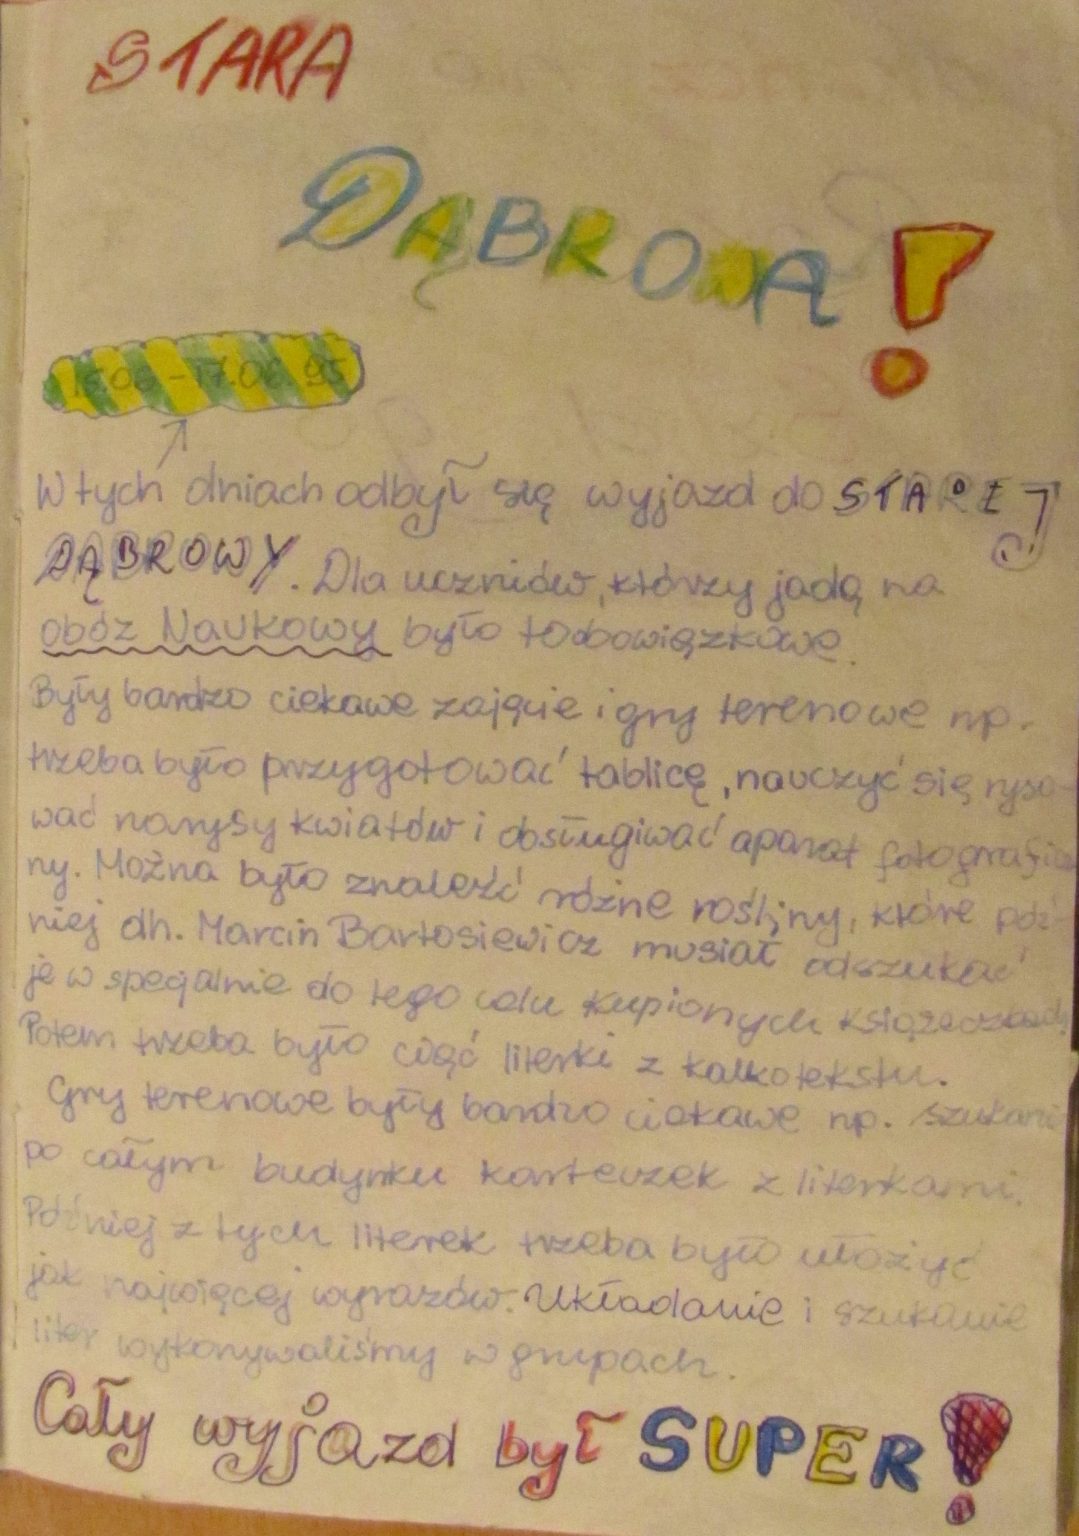 STARA
DĄBROWA!
15.06 - 17.06.95
W tych dniach odbył się wyjazd do STAREJ
DĄBROWY. Dla uczniów, którzy jadą na
obóz Naukowy było to obowiązkowe.
Były bardzo ciekawe zajęcie i gry terenowe np.
trzeba było przygotować tablicę, nauczyć się ryso-
wać narysy kwiatów i obsługiwać aparat fotograficz
ny. Można było znaleźć różne rośliny, które póź-
niej dh. Marcin Bartosiewicz musiał odszukać
je w specjalnie do tego celu kupionych książeczkach
Potem trzeba było ciąć literki z kalkotekstu.
Gry terenowe były bardzo ciekawe np. szukanie
po całym budynku karteczek z literkami.
Później z tych literek trzeba było ułożyć
jak najwięcej wyrazów. Układanie i szukanie
liter wykonywaliśmy w grupach.
Cały wyjazd był SUPER!